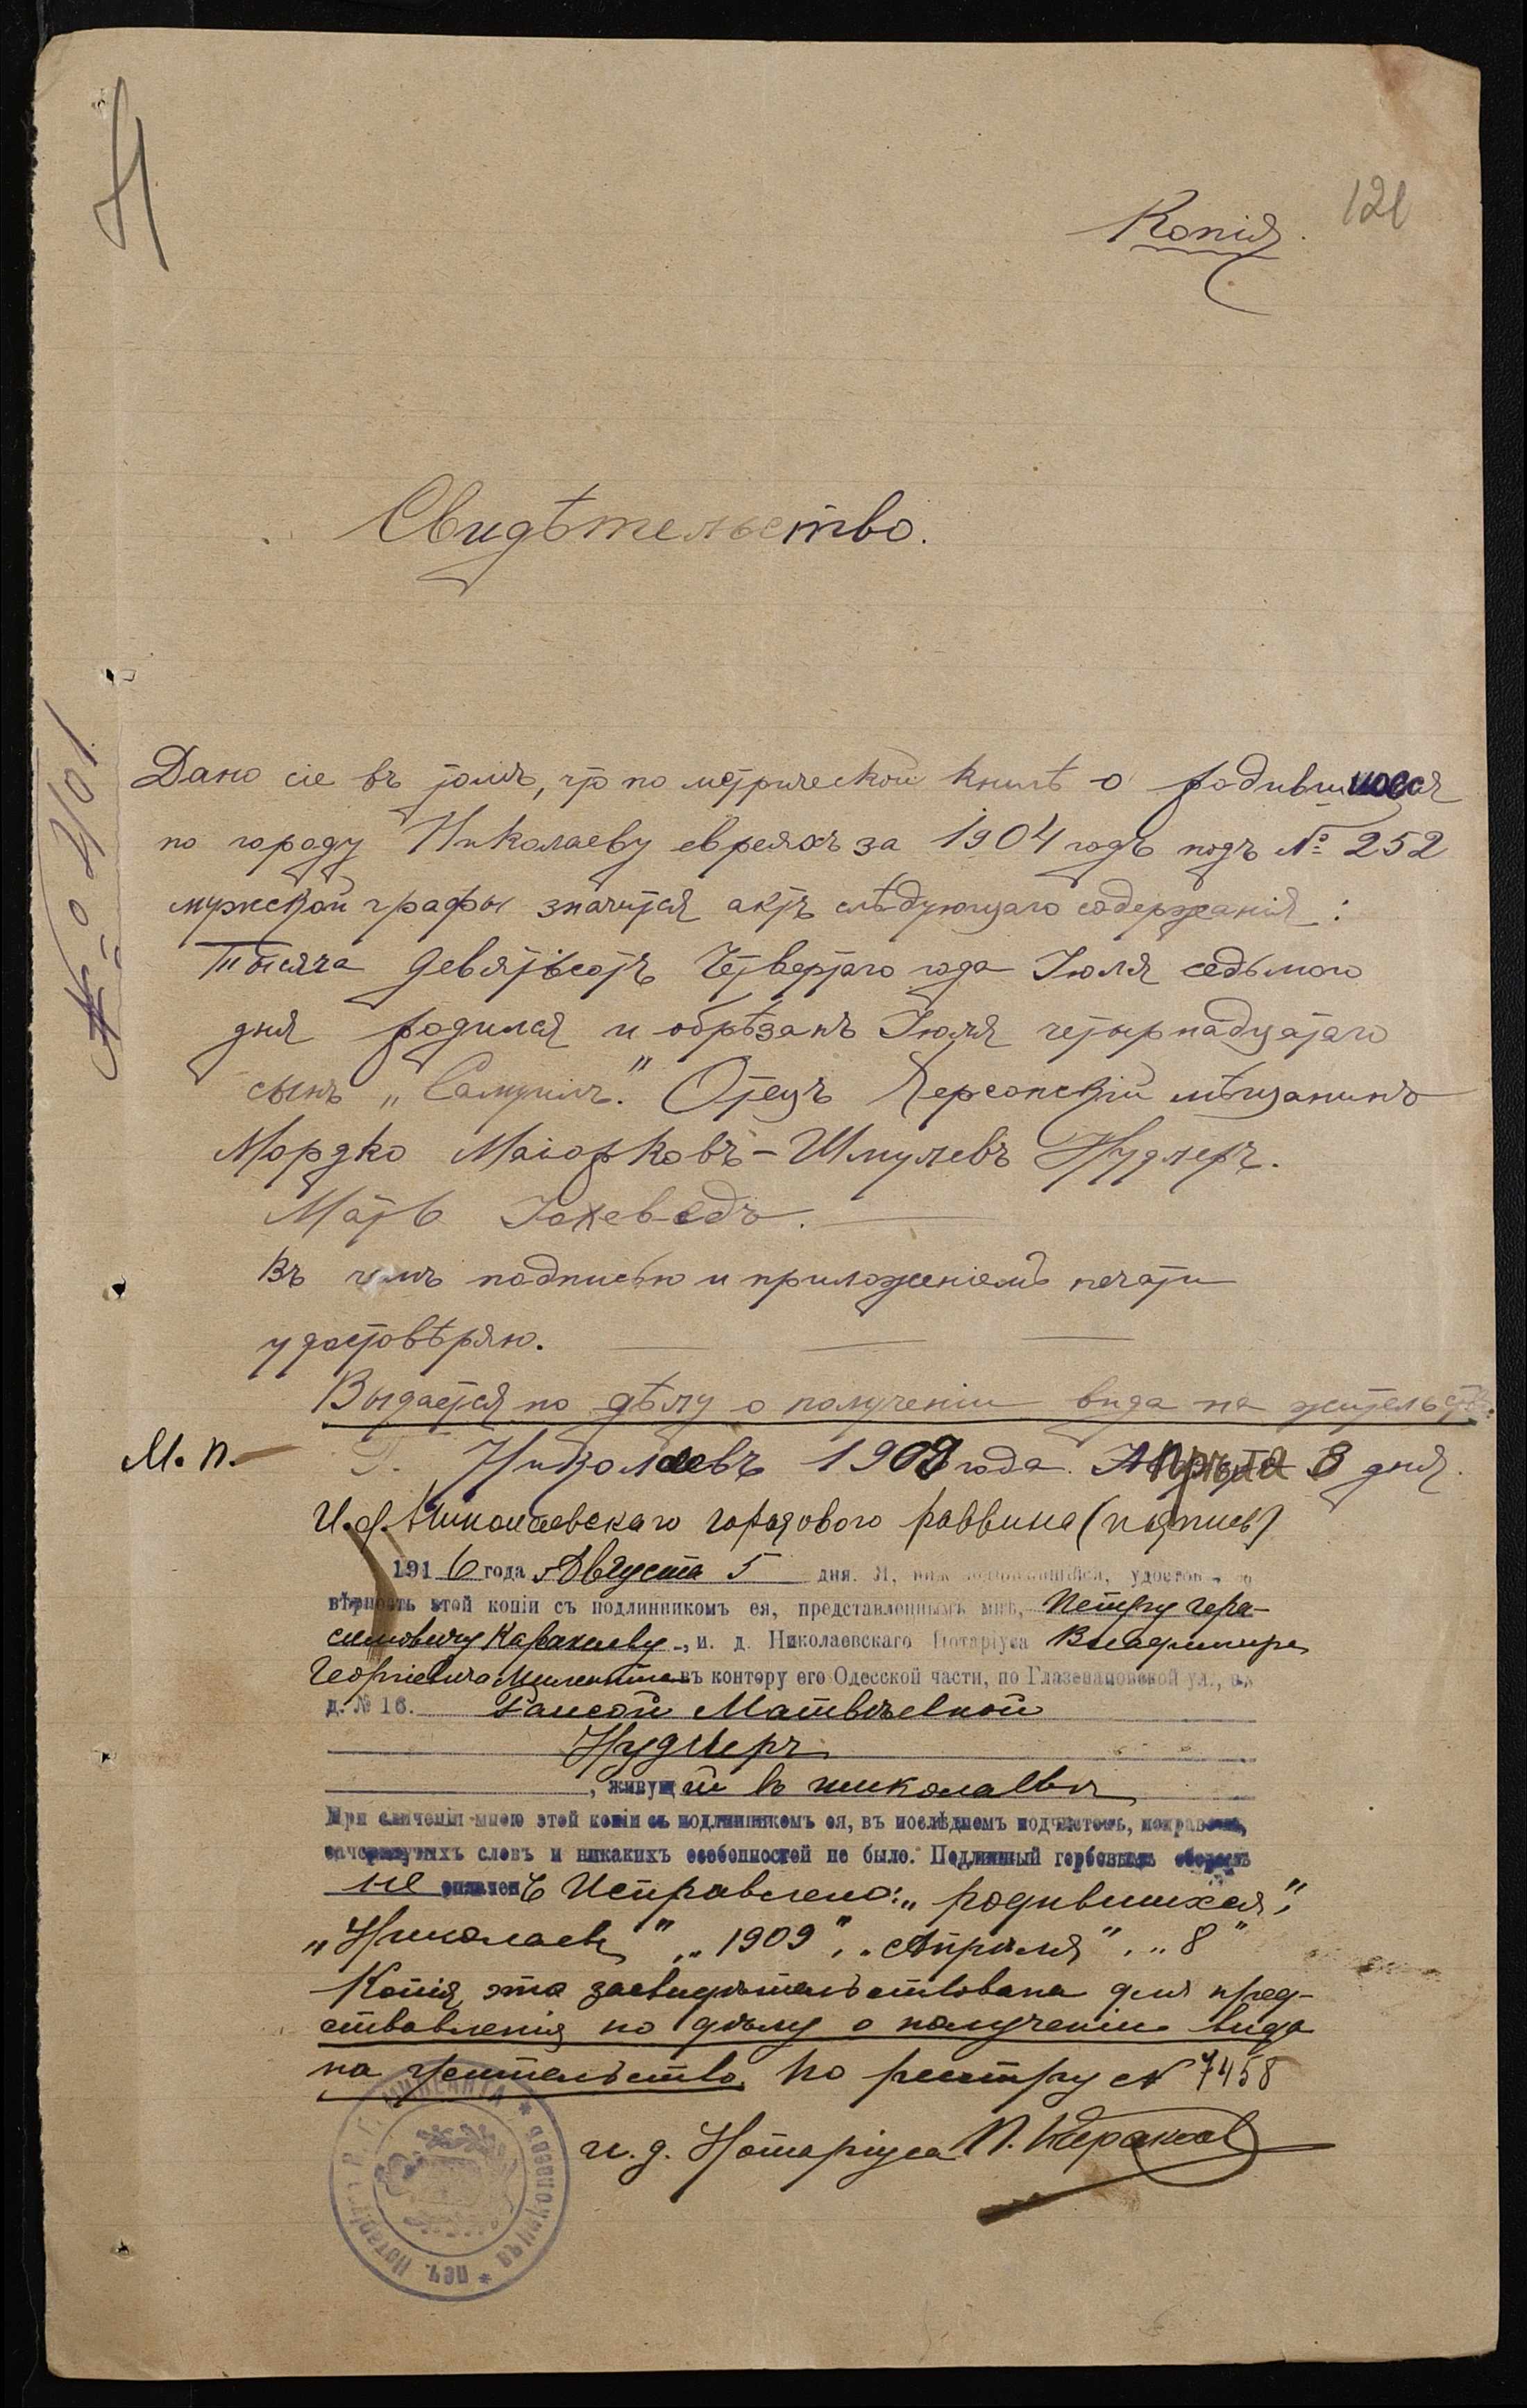 121
Копія.
Свидѣтельство.
Дано сіе въ томъ, что по метрической книгѣ о родившихся
по городу Николаеву евреяхъ за 1904 годъ подъ № 252
мужской графы значится актъ слѣдующаго содержанія:
Тысяча девятьсотъ четвертаго года Іюля седьмого
дня родился и обрѣзанъ Іюля четырнадцатаго
сынъ „Самуилъ". Отецъ Херсонскій мѣщанинъ
Мордко Маіорковъ-Шмулевъ Нудлеръ.
Мать Іохеведъ.
Въ чемъ подписью и приложеніемъ печати
удостовѣряю.
Выдается по дѣлу о полученіи вида на жительство.
М. П. Г. Николаевъ 1909 года Апрѣля 8 дня.
И. об. Николаевскаго городового раввина (подпись)
1916 года Августа 5 дня. Я, нижеподписавшійся, удостовѣряю
вѣрность этой копіи съ подлинникомъ ея, представленнымъ мнѣ, Петру Гера-
симовичу Каракаеву, и. д. Николаевскаго Нотаріуса Владиміра
Георгіевича въ контору его Одесской части, по Глазенаповской ул., въ
д. № 16. Раисой Матвѣевной
Нудлеръ
, живущей въ Николаевѣ
При сличеніи мною этой копіи съ подлинникомъ ея, въ послѣднемъ подчистокъ, поправокъ,
зачеркнутыхъ словъ и никакихъ особенностей не было. Подлинный гербовымъ сборомъ
не оплаченъ Исправлено: „родившихся",
„Николаевъ", „1909", „Апрѣля", „8"
Копія эта засвидѣтельствована для пред-
ставленія по дѣлу о полученіи вида
на жительство. По реестру № 7458
и. д. Нотаріуса П.